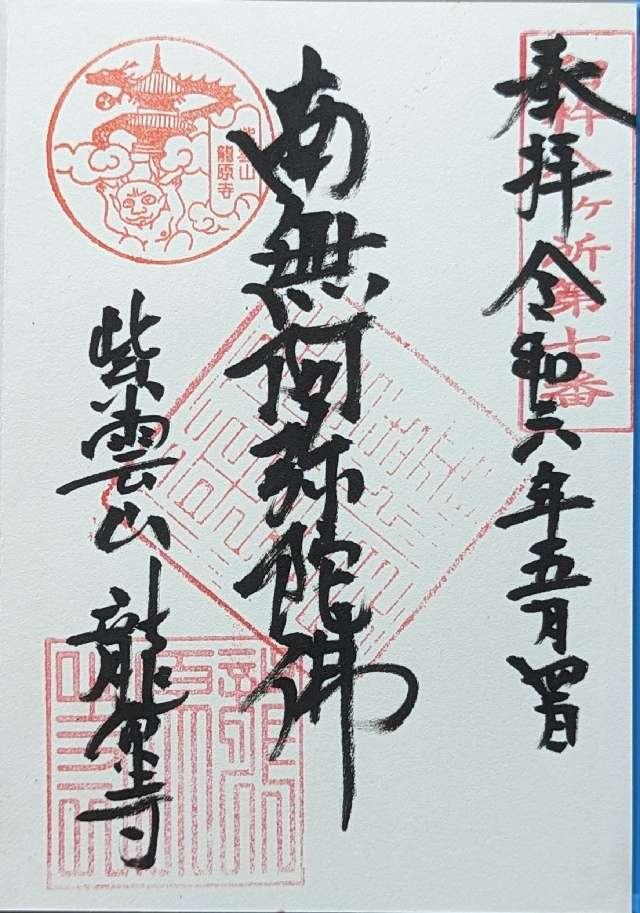 奉拝 令和六年五月四日
臼杵八ヶ所第七番
南無阿弥陀佛
紫雲山 龍原寺
紫雲山
龍原寺